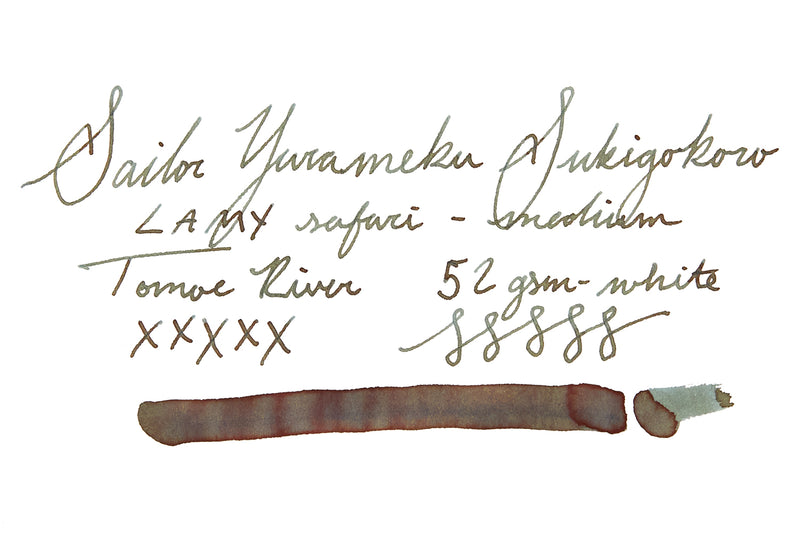 Sailor Yurameku Sukigokoro
LAMY safari - medium
Tomoe River 52 gsm - white
XXXXX